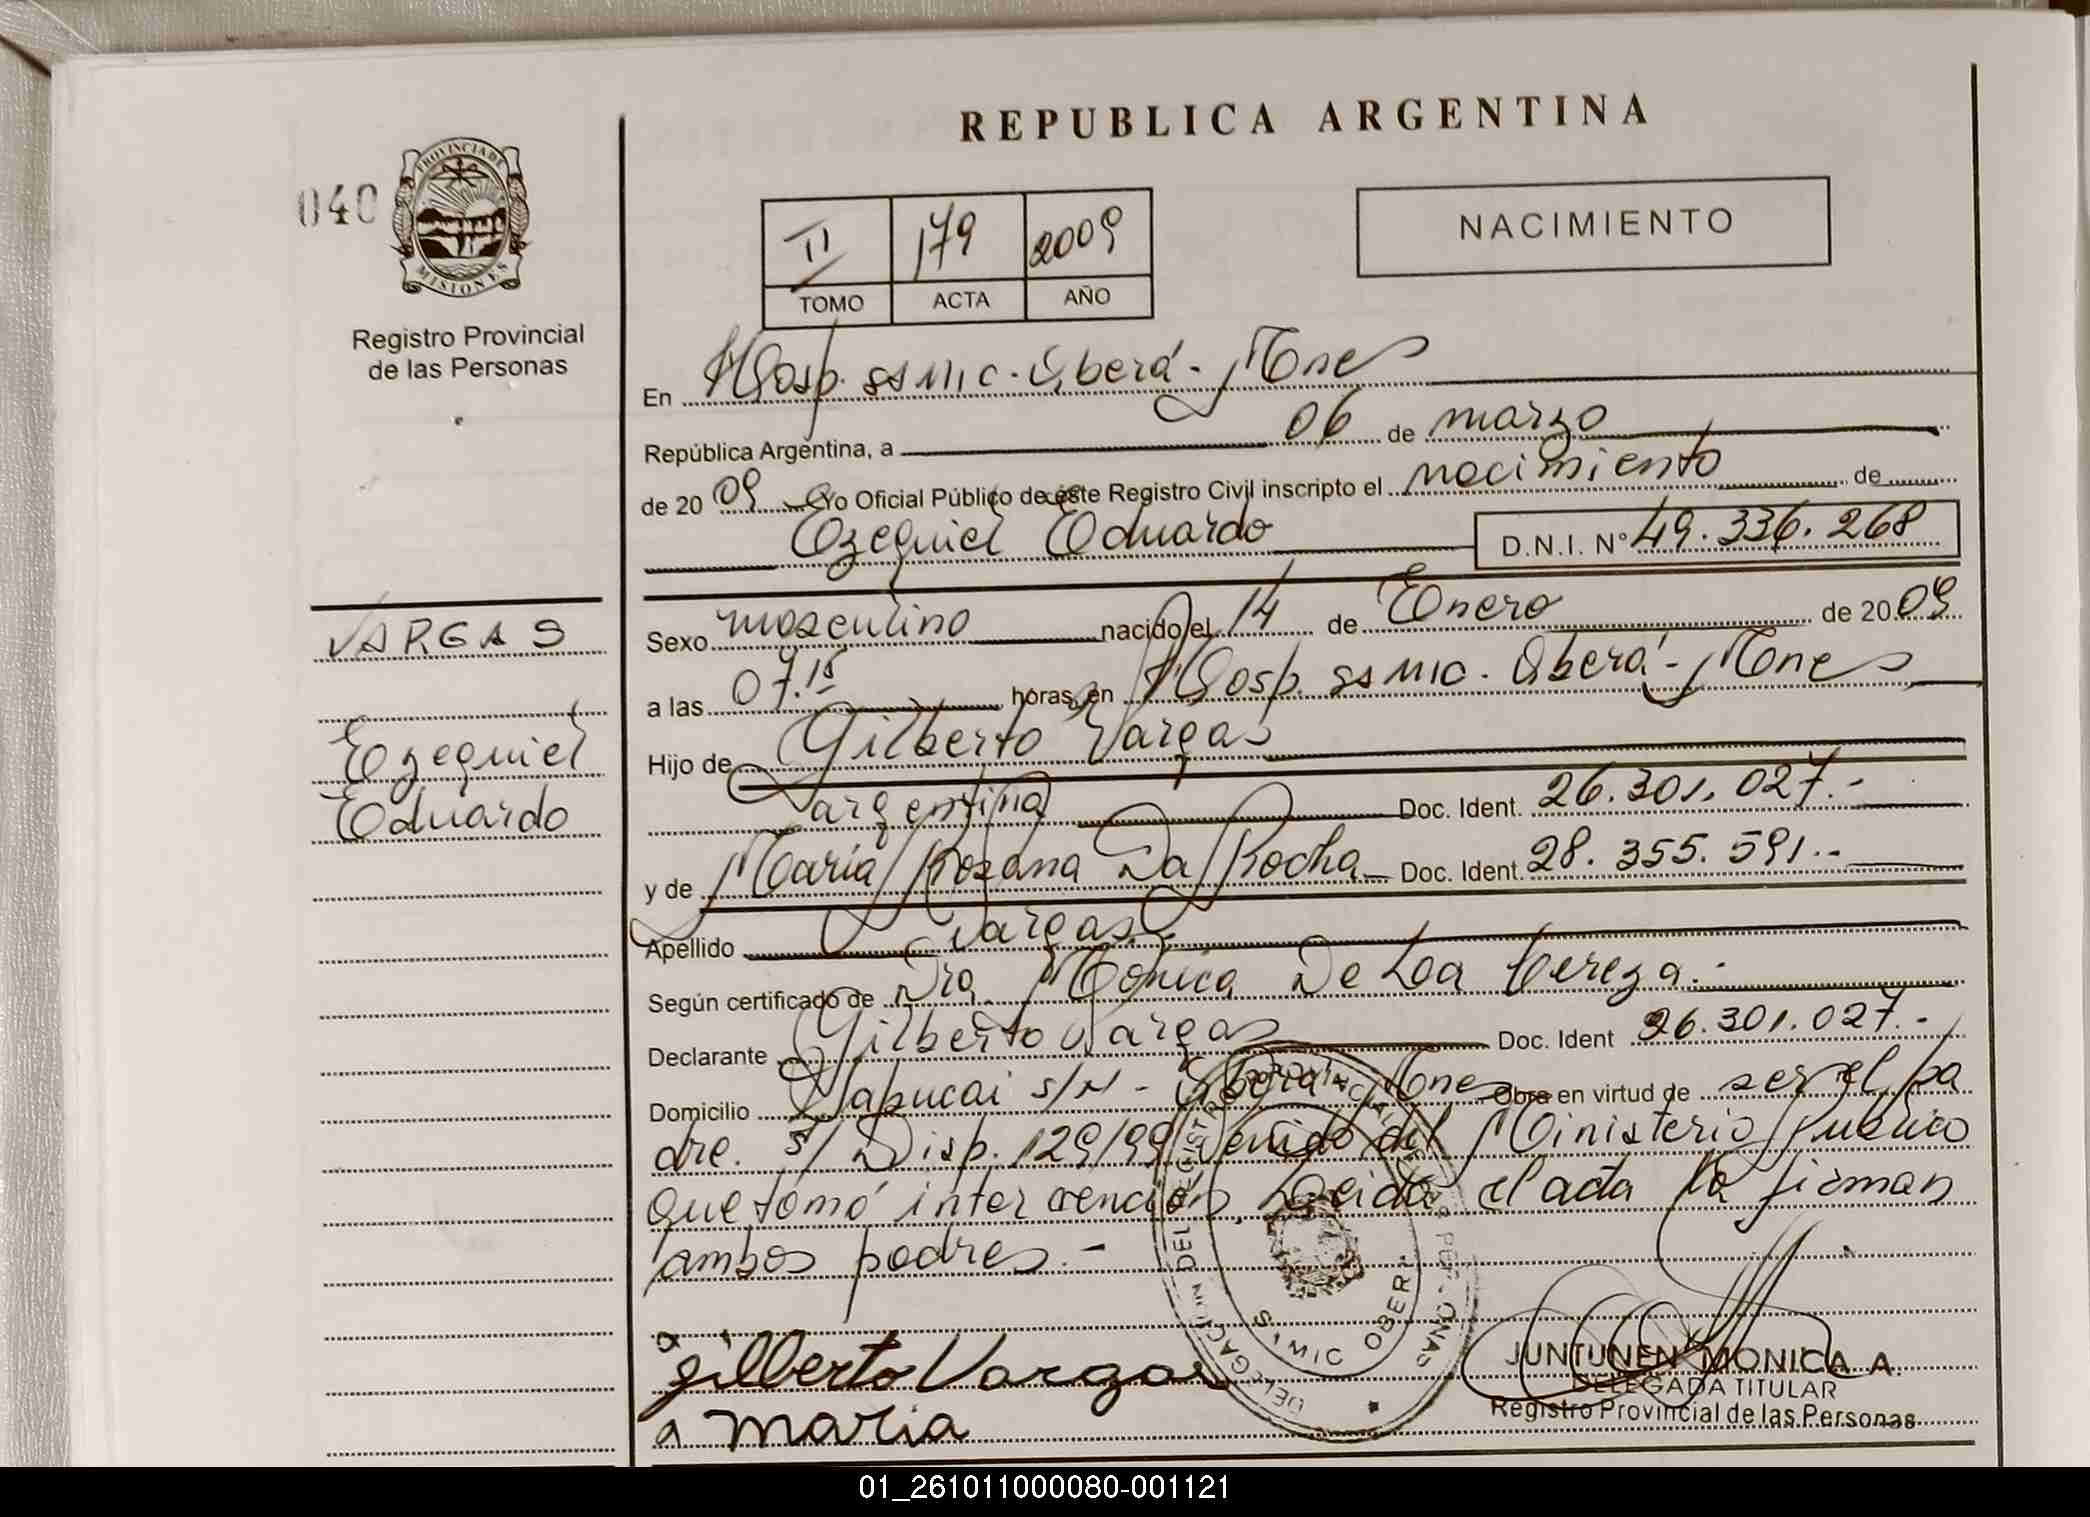 REPUBLICA ARGENTINA
040
PROVINCIA DE MISIONES
Registro Provincial
de las Personas
II 179 2009
TOMO ACTA AÑO
NACIMIENTO
En Hosp. SSMIC. Oberá - Mnes
República Argentina, a 06 de marzo
de 20 09 Yo Oficial Público de este Registro Civil inscripto el nacimiento de
Ezequiel Eduardo D.N.I. N° 49.336.268
VARGAS
Ezequiel
Eduardo
Sexo masculino nacido el 14 de Enero de 20 09
a las 07.15 horas, en Hosp. SSMIC. Oberá - Mnes
Hijo de Gilberto Vargas
argentina Doc. Ident. 26.301.027.-
y de María Rosana Da Rocha Doc. Ident. 28.355.591.-
Apellido Vargas
Según certificado de Dra. Mónica De La Cereza.-
Declarante Gilberto Vargas Doc. Ident 26.301.027.-
Domicilio Yapucai s/n - Oberá Mnes Obra en virtud de ser el pa
dre. s/ Disp. 129/99 venido del Ministerio Publico
que tomó intervención. Leida el acta la firman
ambos padres.-
DELEGACION DEL REGISTRO PROVINCIAL DE LAS PERSONAS
SAMIC OBERA
Gilberto Vargas
maria
JUNTUNEN MONICA A.
DELEGADA TITULAR
Registro Provincial de las Personas
01_261011000080-001121